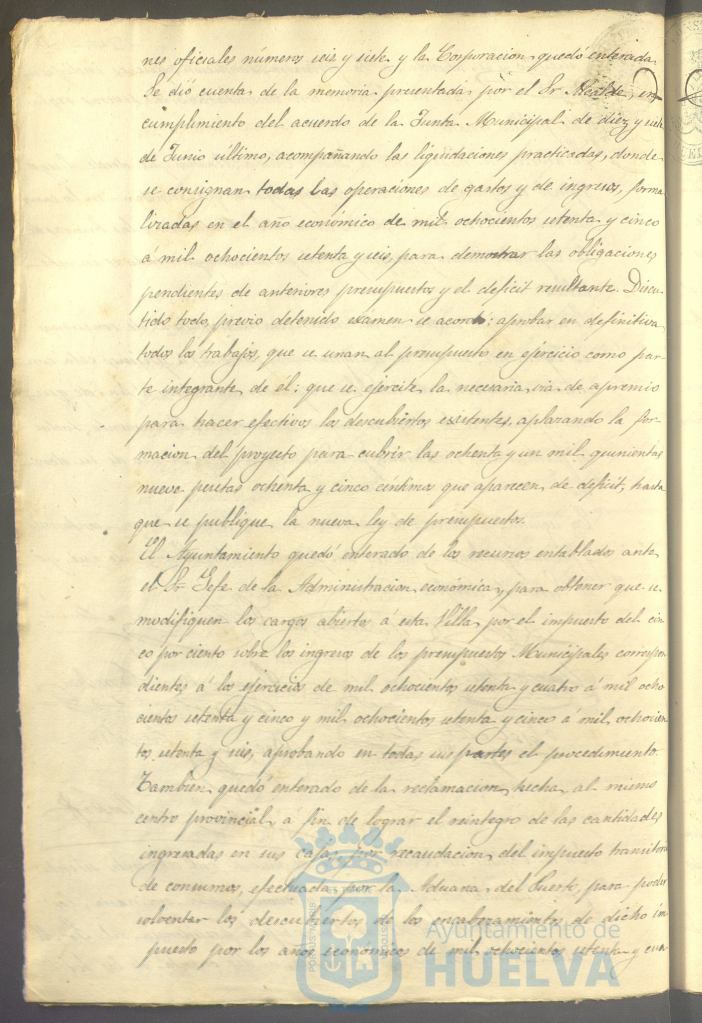 nes oficiales números seis y siete y la Corporacion quedó enterada.
Se dió cuenta de la memoria presentada por el Sr Alcalde, en
cumplimiento del acuerdo de la Junta Municipal de diez y siete
de Junio ultimo, acompañando las liquidaciones practicadas, donde
se consignan todas las operaciones de gastos y de ingresos, forma
lizadas en el año económico de mil ochocientos setenta y cinco
á mil ochocientos setenta y seis, para demostrar las obligaciones
pendientes de anteriores presupuestos y el deficit resultante. Discu-
tido todo, previo detenido examen se acordó: aprobar en definitiva
todos los trabajos, que se unan al presupuesto en ejercicio como par-
te integrante de él: que se ejercite la necesaria via de apremio
para hacer efectivos los descubiertos existentes, aplazando la for-
macion del proyecto para cubrir las ochenta y un mil quinientas
nueve pesetas ochenta y cinco centimos que aparecen de deficit, hasta
que se publique la nueva ley de presupuestos.
El Ayuntamiento quedó enterado de los recursos entablados ante
el Sr Jefe de la Administracion económica, para obtener que se
modifiquen los cargos abiertos á esta Villa, por el impuesto del cin-
co por ciento sobre los ingresos de los presupuestos Municipales correspon
dientes á los ejercicios de mil ochocientos setenta y cuatro á mil ocho
cientos setenta y cinco y mil ochocientos setenta y cinco á mil ochocien
tos setenta y seis, aprobando en todas sus partes el procedimiento.
Tambien quedó enterado de la reclamacion hecha al mismo
centro provincial, á fin de lograr el reintegro de las cantidades
ingresadas en sus cajas por recaudacion del impuesto transitorio
de consumos, efectuada por la Aduana del Puerto, para poder
solventar los descubiertos de los encabezamientos de dicho im
puesto por los años económicos de mil ochocientos setenta y cua-
Ayuntamiento de
HUELVA